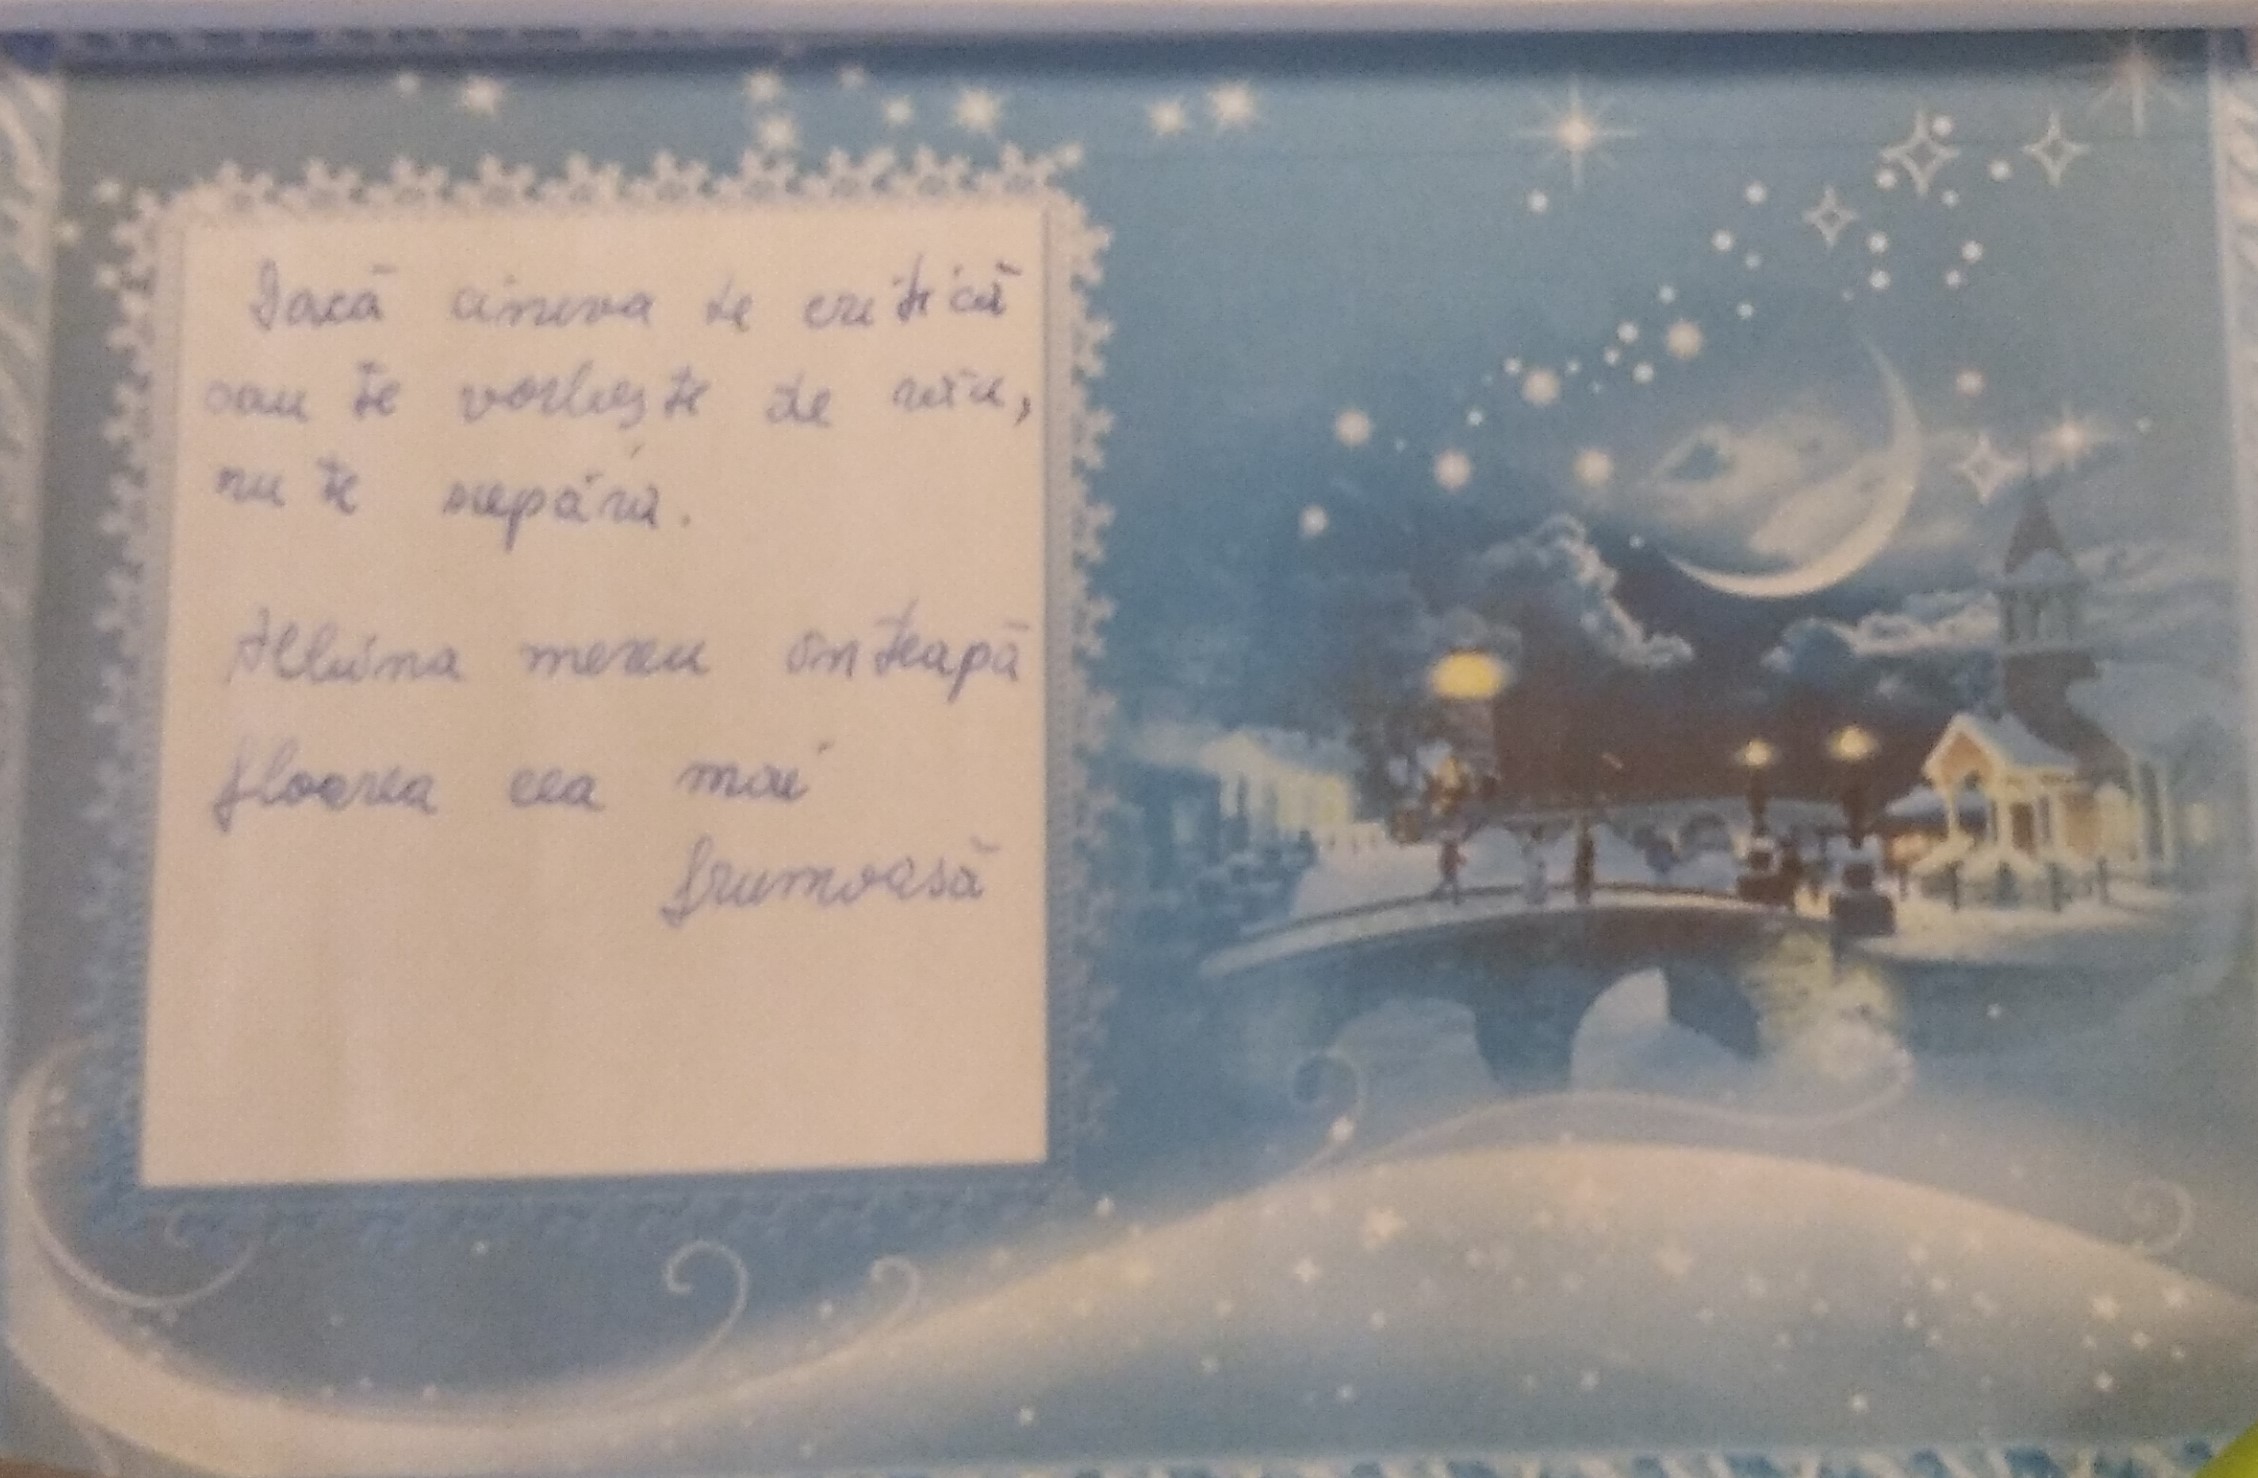 Dacă cineva te critică
sau te vorbește de rău,
nu te supăra.
Albina mereu înțeapă
floarea cea mai
frumoasă